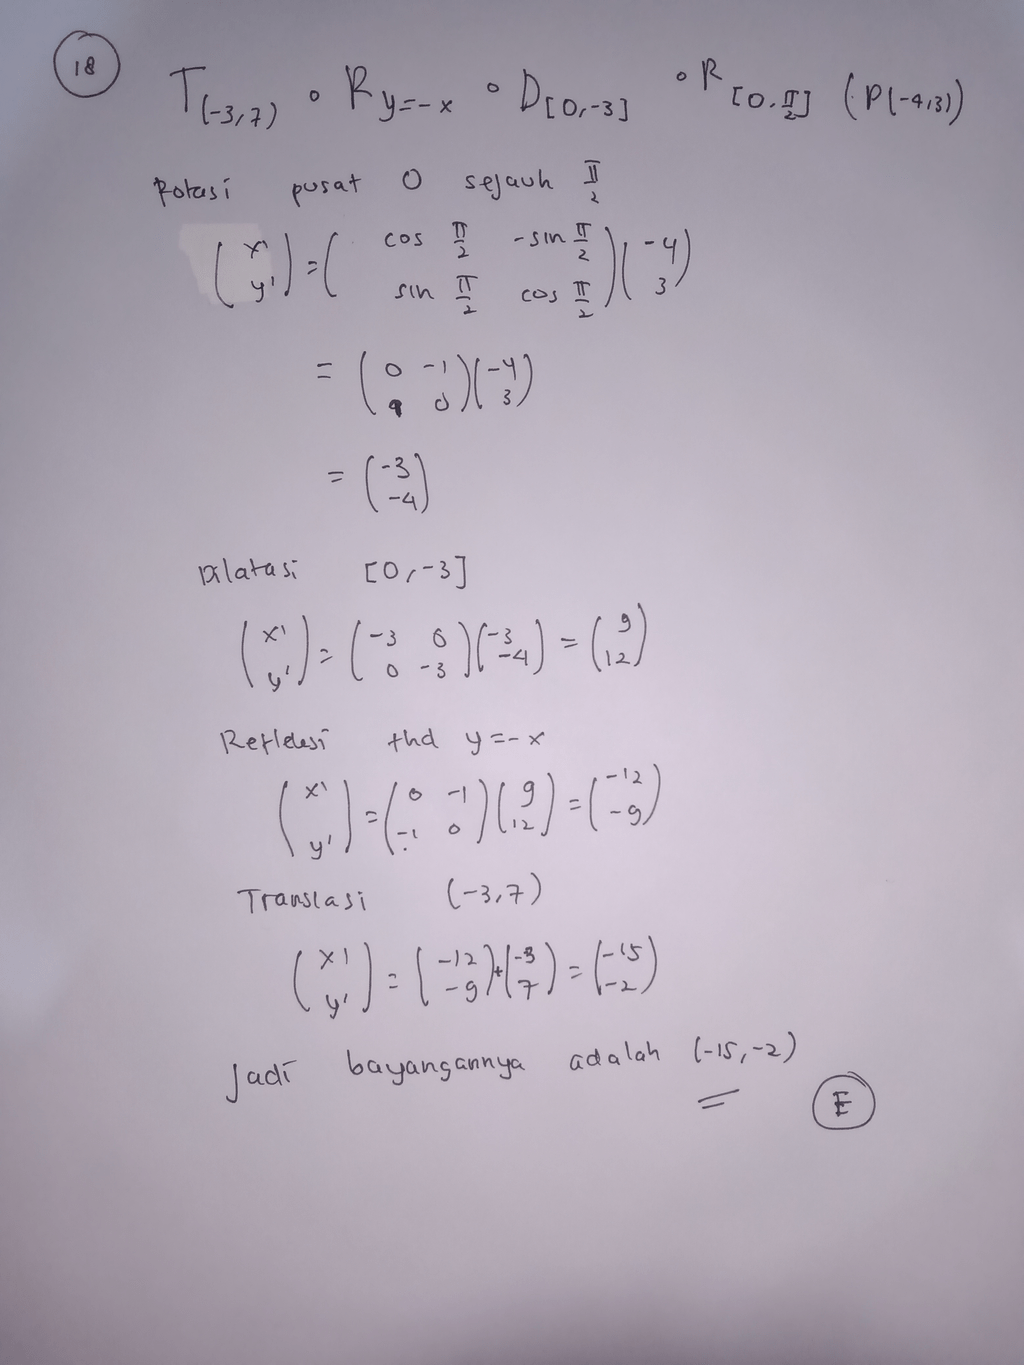 18
T(-3,7) ∘ Ry=-x ∘ D[0,-3] ∘ R[0,π/2] (P(-4,3))
Rotasi pusat O sejauh π/2
(x' y') = (cos π/2 -sin π/2 sin π/2 cos π/2)(-4 3)
= (0 -1 1 0)(-4 3)
= (-3 -4)
Dilatasi [0,-3]
(x' y') = (-3 0 0 -3)(-3 -4) = (9 12)
Refleksi thd y=-x
(x' y') = (0 -1 -1 0)(9 12) = (-12 -9)
Translasi (-3,7)
(x' y') = (-12 -9)+(-3 7) = (-15 -2)
Jadi bayangannya adalah (-15,-2)
E